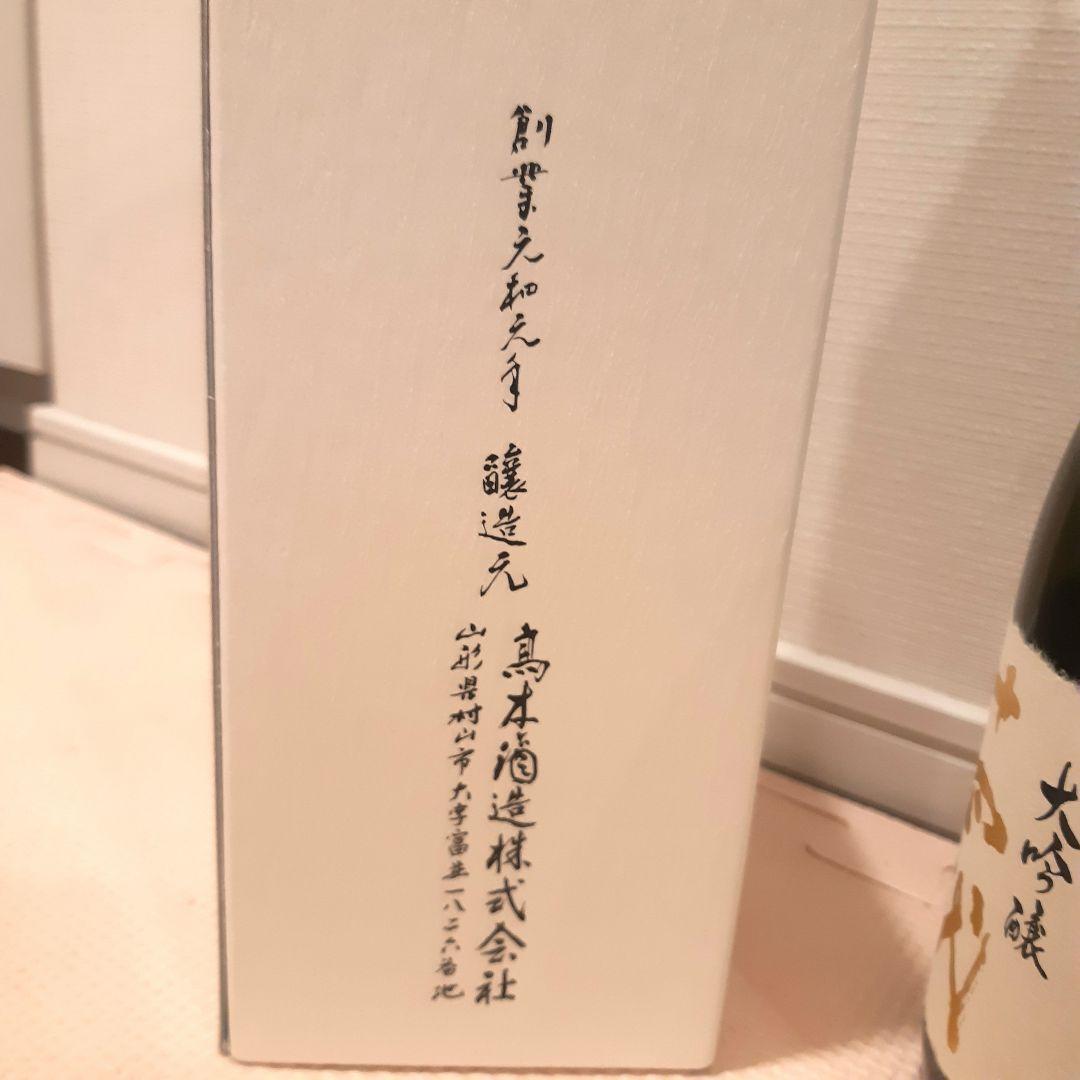 創業元和元年 醸造元
高木酒造株式会社
山形県村山市大字富並一八二六番地
大吟醸